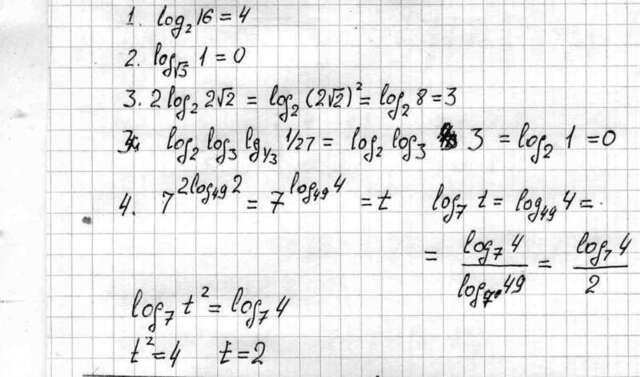 1. log₂ 16 = 4
2. log_√5 1 = 0
3. 2 log₂ 2√2 = log₂ (2√2)² = log₂ 8 = 3
log₂ log₃ lg_1/3 1/27 = log₂ log₃ 3 = log₂ 1 = 0
4. 7^(2log₄₉2) = 7^(log₄₉4) = t log₇ t = log₄₉ 4 =
= log₇ 4 / log₇ 49 = log₇ 4 / 2
log₇ t² = log₇ 4
t² = 4 t = 2